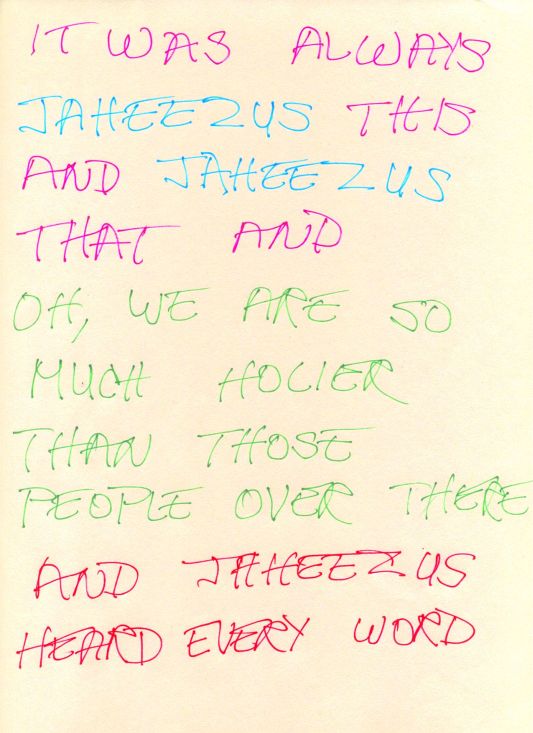 IT WAS ALWAYS
JAHEEZUS THIS
AND JAHEEZUS
THAT AND
OH, WE ARE SO
MUCH HOLIER
THAN THOSE
PEOPLE OVER THERE
AND JAHEEZUS
HEARD EVERY WORD